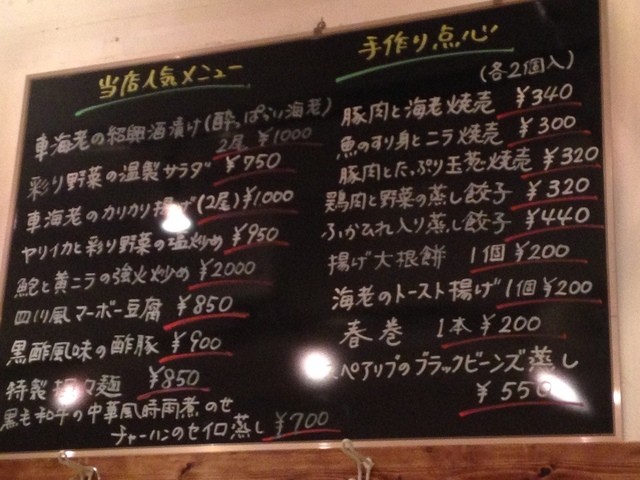 当店人気メニュー
車海老の紹興酒漬け(酔っぱらい海老)
2尾 ¥1000
彩り野菜の温製サラダ ¥750
車海老のカリカリ揚げ(2尾)¥1000
ヤリイカと彩り野菜の塩炒め ¥950
鮑と黄ニラの強火炒め ¥2000
四川風マーボー豆腐 ¥850
黒酢風味の酢豚 ¥900
特製担々麺 ¥850
黒毛和牛の中華風時雨煮のせ
チャーハンのセイロ蒸し ¥700
手作り点心
(各2個入)
豚肉と海老焼売 ¥340
魚のすり身とニラ焼売 ¥300
豚肉とたっぷり玉葱焼売 ¥320
鶏肉と野菜の蒸し餃子 ¥320
ふかひれ入り蒸し餃子 ¥440
揚げ大根餅 1個 ¥200
海老のトースト揚げ 1個 ¥200
春巻 1本 ¥200
スペアリブのブラックビーンズ蒸し
¥550